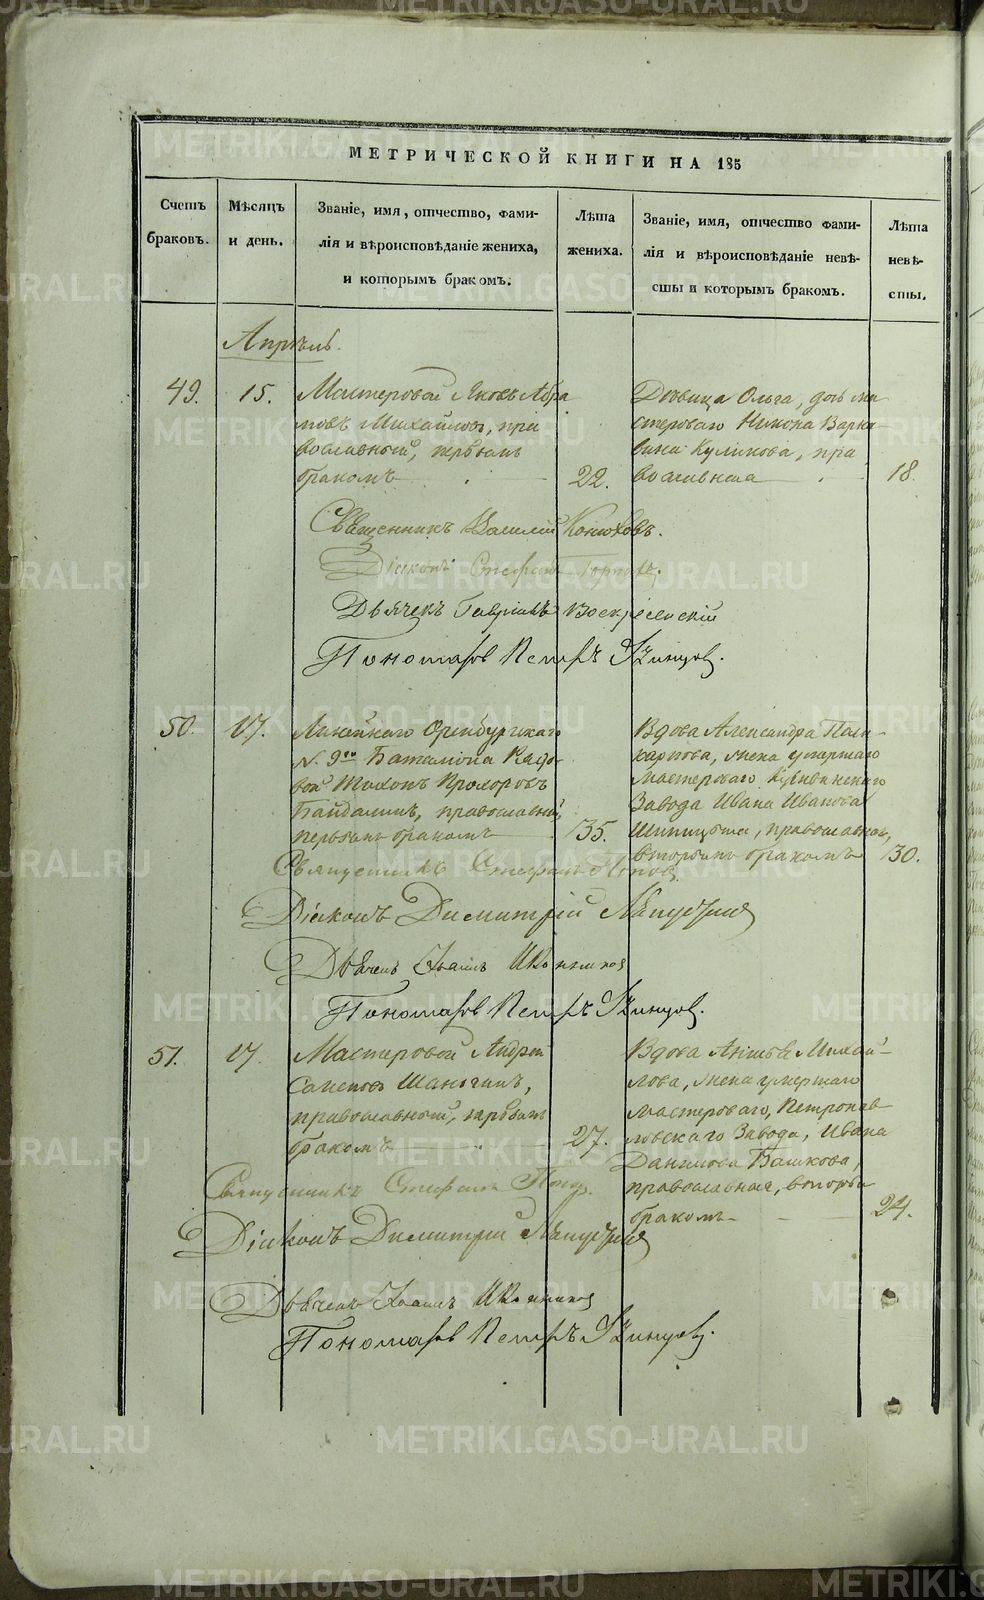 МЕТРИЧЕСКОЙ КНИГИ НА 185
Счетъ браковъ.
Мѣсяцъ и день.
Званіе, имя, отчество, фами-
лія и вѣроисповѣданіе жениха,
и которымъ бракомъ.
Лѣта жениха.
Званіе, имя, отчество фами-
лія и вѣроисповѣданіе невѣ-
сты и которымъ бракомъ.
Лѣта невѣ-
сты.
Апрѣль.
49. 15.
Мастеровой Яковъ Абра
мовъ Михайловъ, пра
вославный, первымъ
бракомъ 22.
Дѣвица Ольга, дочь ма
стероваго Никона Варна-
вина Куликова, пра
вославная 18.
Священникъ Василій Конюховъ.
Діаконъ Стефанъ
Дьячекъ Гавріилъ Воскресенскій
Пономарь Петръ
50. 17.
Линейнаго Оренбургскаго
№ 9го Баталіона Рядо-
вой Тихонъ Прохоровъ
православный,
первымъ бракомъ 35.
Вдова Александра Поли-
карпова, жена умершаго
мастероваго Кувинскаго
Завода Ивана Иванова
Шипицына, православная,
вторымъ бракомъ 30.
Священникъ Стефанъ Попов
Діаконъ Димитрій
Дьячекъ Іоаннъ Иконников
Пономарь Петръ
51. 17.
Мастеровой Андрей
православный, первымъ
бракомъ 27.
Вдова Михай-
лова, жена умершаго
мастероваго, Петропав-
ловскаго Завода, Ивана
Данилова Башкова,
православная, вторымъ
бракомъ 24.
Священникъ Стефанъ Попов.
Діаконъ Димитрій
Дьячекъ Іоаннъ Иконников
Пономарь Петръ
METRIKI.GASO-URAL.RU